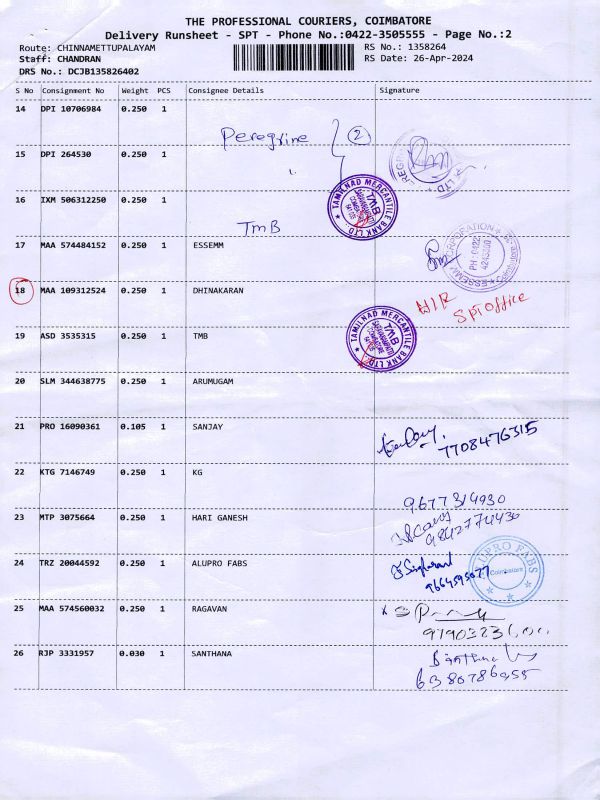 THE PROFESSIONAL COURIERS, COIMBATORE
Delivery Runsheet - SPT - Phone No.:0422-3505555 - Page No.:2
Route: CHINNAMETTUPALAYAM
RS No.: 1358264
Staff: CHANDRAN
RS Date: 26-Apr-2024
DRS No.: DCJB135826402
S No Consignment No Weight PCS Consignee Details Signature
14 DPI 10706984 0.250 1
Peregrine 2
15 DPI 264530 0.250 1
16 IXM 506312250 0.250 1
TAMILNAD MERCANTILE BANK LTD. TMB
TMB
17 MAA 574484152 0.250 1 ESSEMM
ESSEMM CORPORATION PH : 0422
18 MAA 109312524 0.250 1 DHINAKARAN
SPT office
19 ASD 3535315 0.250 1 TMB
TAMILNAD MERCANTILE BANK LTD. TMB
20 SLM 344638775 0.250 1 ARUMUGAM
21 PRO 16090361 0.105 1 SANJAY
7708476315
22 KTG 7146749 0.250 1 KG
9677314930
23 MTP 3075664 0.250 1 HARI GANESH
9842774430
24 TRZ 20044592 0.250 1 ALUPRO FABS
ALUPRO FABS Coimbatore
9664595077
25 MAA 574560032 0.250 1 RAGAVAN
26 RJP 3331957 0.030 1 SANTHANA